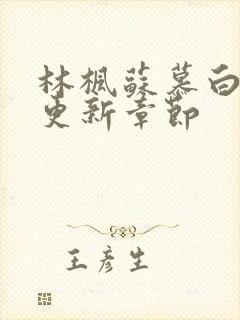 林楓蘇慕白
更新章節
王彦生